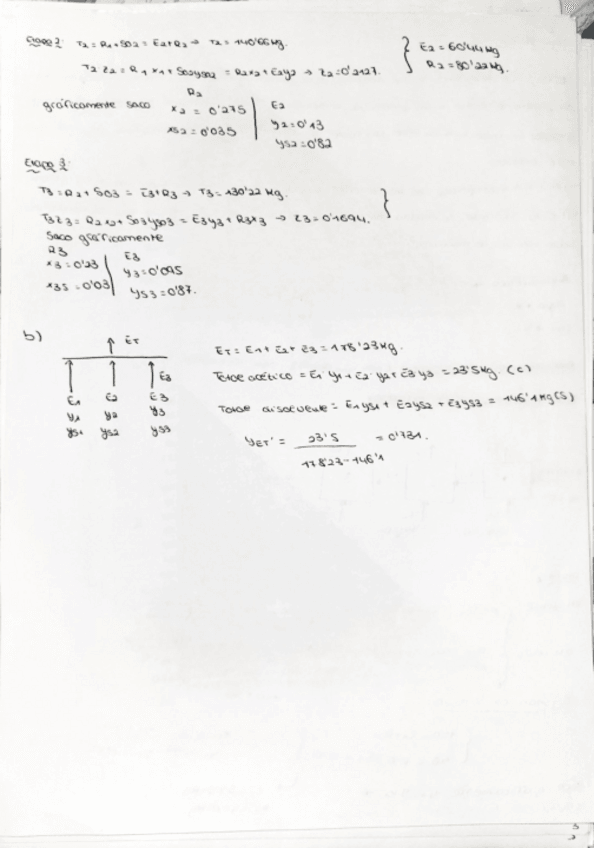 Etapa 2: T2 = R1 + S02 = E2 + R2 → T2 = 140'66 kg.
T2 z2 = R1 x1 + S02 yS02 = R2 x2 + E2 y2 → z2 = 0'2127.
} E2 = 60'44 kg
R2 = 80'22 kg.
gráficamente saco
R2
x2 = 0'275
xS2 = 0'035
E2
y2 = 0'13
yS2 = 0'82
Etapa 3:
T3 = R2 + S03 = E3 + R3 → T3 = 130'22 kg.
T3 z3 = R2 x2 + S03 yS03 = E3 y3 + R3 x3 → z3 = 0'1694. }
Saco gráficamente
R3
x3 = 0'23
x3S = 0'03
E3
y3 = 0'095
yS3 = 0'87.
b)
ET
E3
E1 E2 E3
y1 y2 y3
yS1 yS2 yS3
ET = E1 + E2 + E3 = 178'23 kg.
Total acético = E1 y1 + E2 y2 + E3 y3 = 23'5 kg. (C)
Total disolvente = E1 yS1 + E2 yS2 + E3 yS3 = 146'1 kg (S)
yET' = 23'5 / 178'23 - 146'1 = 0'731.